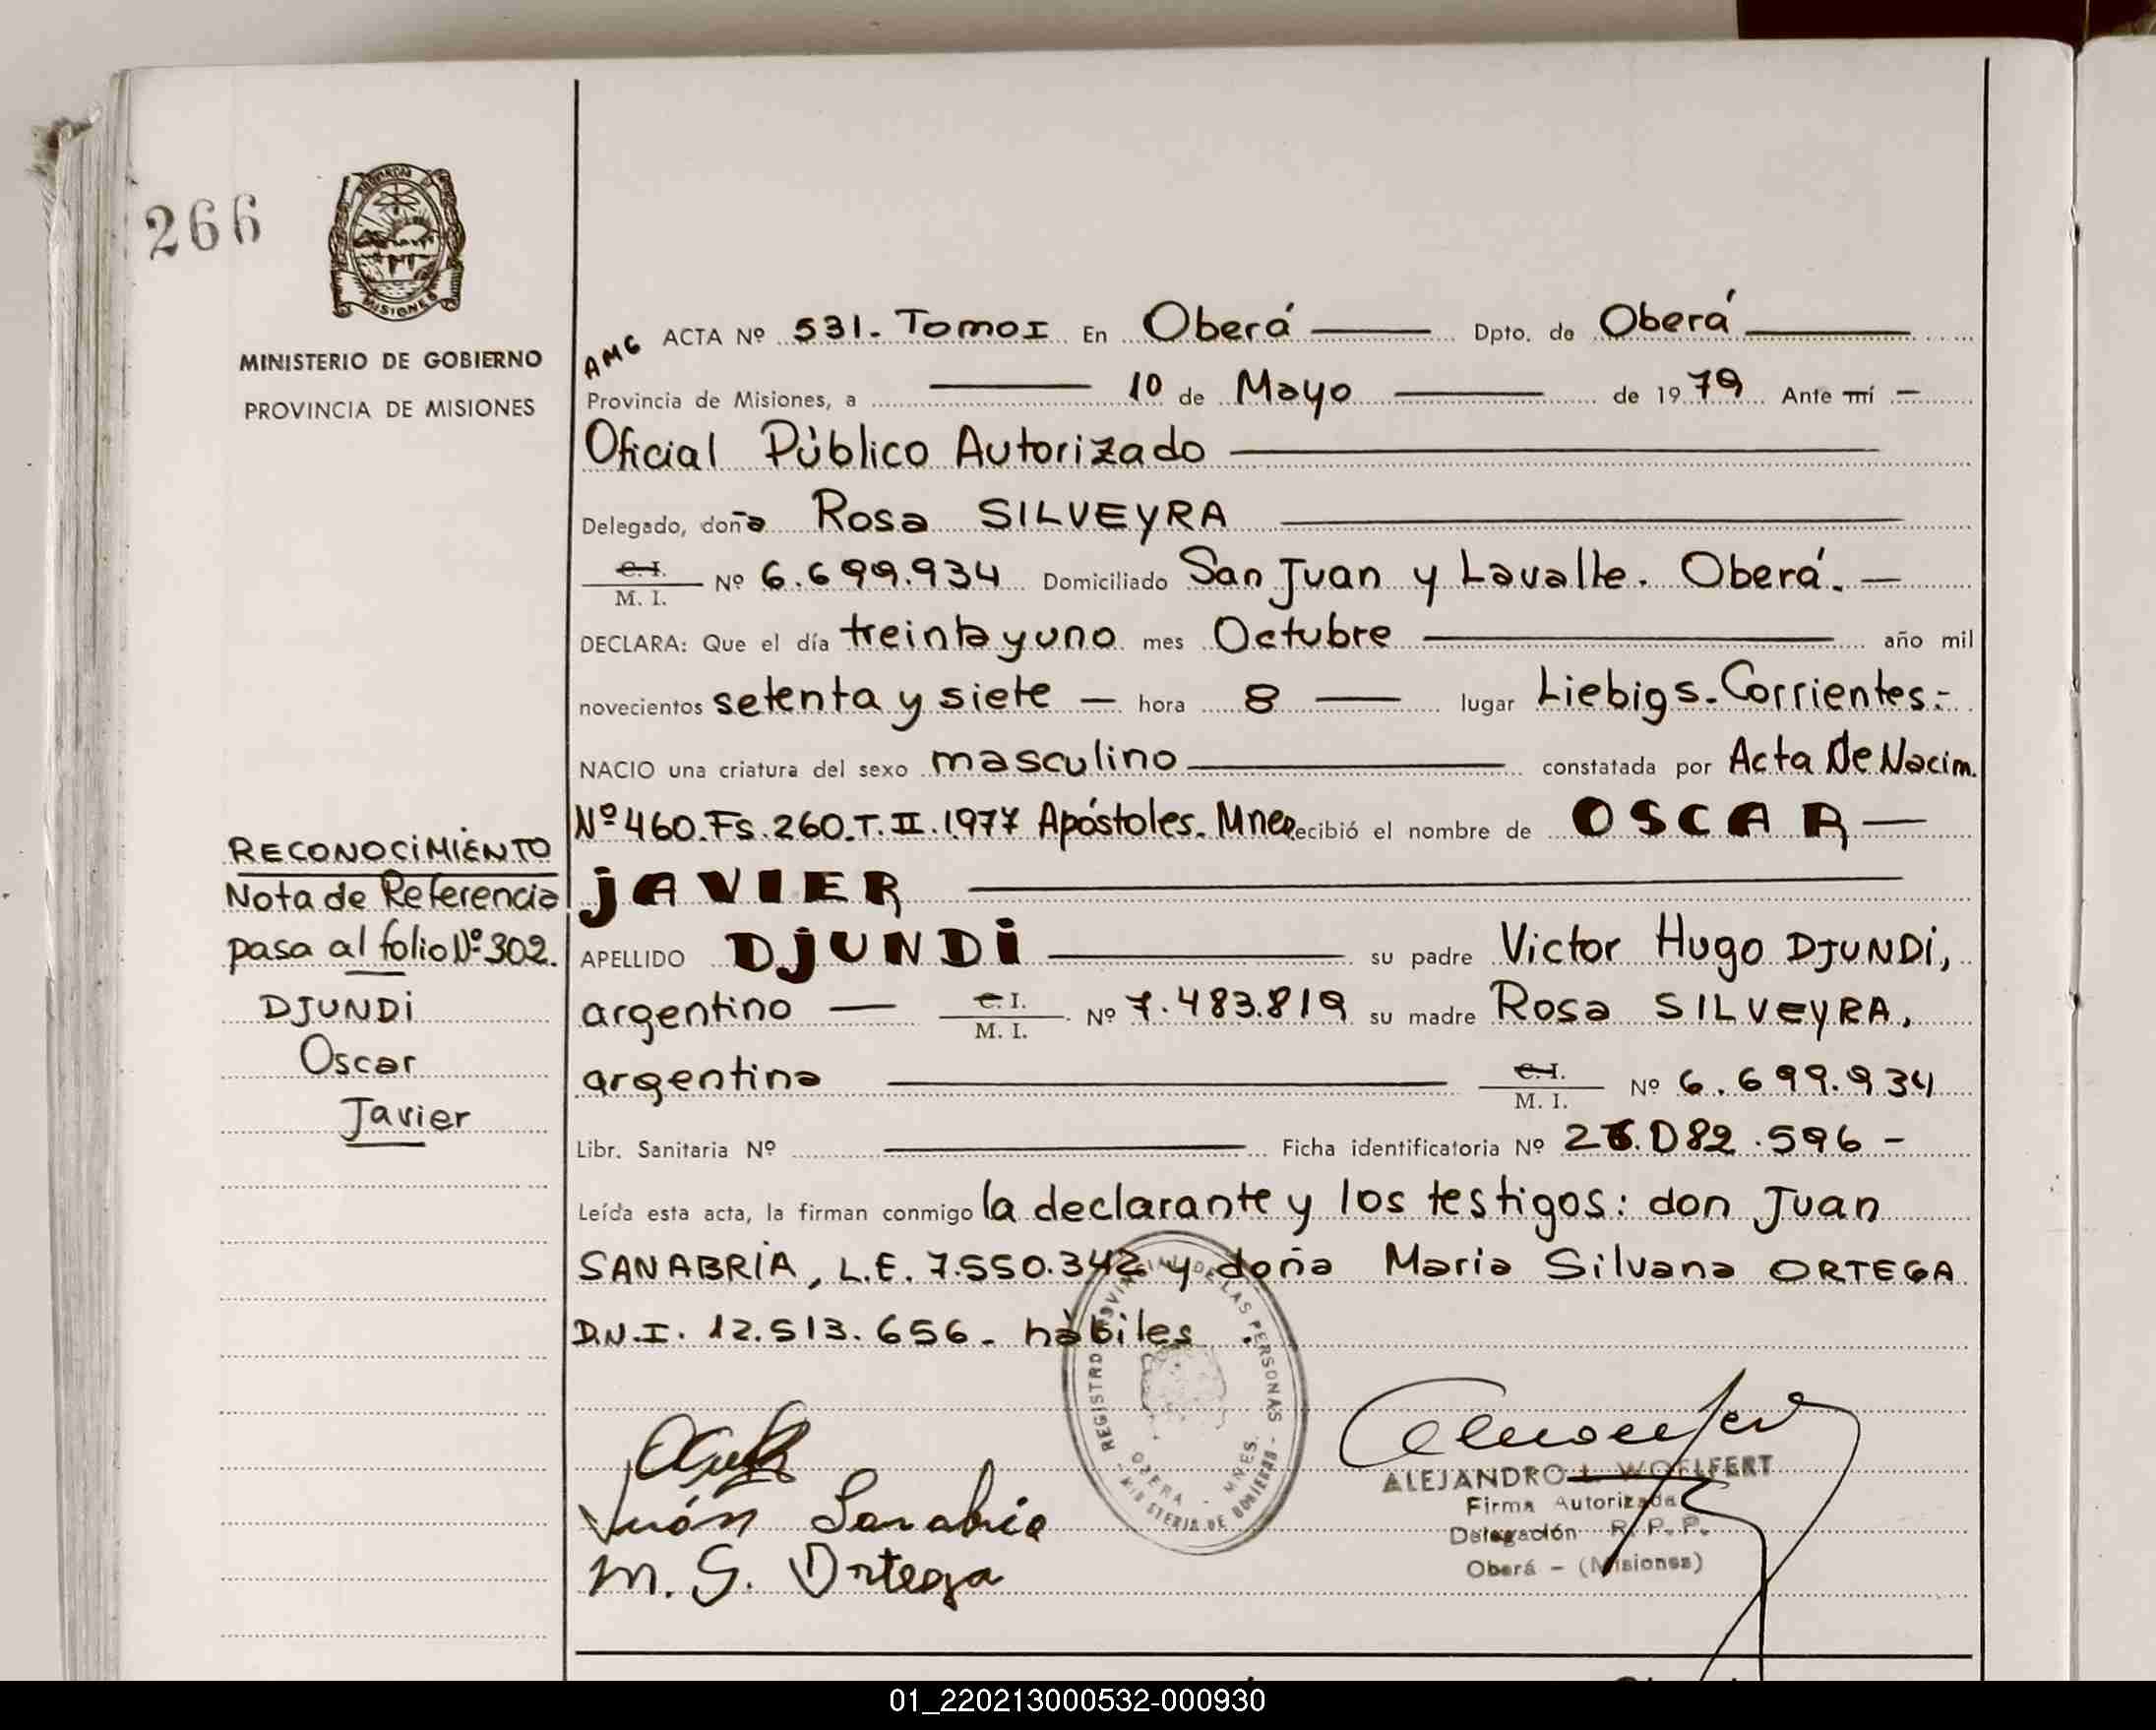 266
MISIONES
MINISTERIO DE GOBIERNO
PROVINCIA DE MISIONES
RECONOCIMIENTO
Nota de Referencia
pasa al folio Nº 302.
DJUNDi
Oscar
Javier
AMG
ACTA Nº 531. Tomo I En Oberá Dpto. de Oberá
Provincia de Misiones, a 10 de Mayo de 1979 Ante mí
Oficial Público Autorizado
Delegado, doña Rosa SILVEYRA
C. I. / M. I. Nº 6.699.934 Domiciliado San Juan y Lavalle. Oberá. —
DECLARA: Que el día treinta y uno mes Octubre año mil
novecientos setenta y siete — hora 8 — lugar Liebigs. Corrientes.-
NACIO una criatura del sexo masculino constatada por Acta De Nacim.
Nº 460. Fs. 260. T. II. 1977 Apóstoles. Mnes recibió el nombre de OSCAR —
jAVIER
APELLIDO DjUNDi su padre Victor Hugo DJUNDi,
argentino — C. I. / M. I. Nº 7.483.819 su madre Rosa SILVEYRA,
argentina C. I. / M. I. Nº 6.699.934
Libr. Sanitaria Nº Ficha identificatoria Nº 26.082.596 -
Leída esta acta, la firman conmigo la declarante y los testigos: don Juan
SANABRIA, L.E. 7.550.342 y doña Maria Silvana ORTEGA
D.N.I. 12.513.656. hábiles.
REGISTRO PROVINCIAL DE LAS PERSONAS - MINISTERIO DE GOBIERNO
OBERA - MNES.
Juán Sanabria
M. S. Ortega
ALEJANDRO L. WOELFERT
Firma Autorizada
Delegación R. P. P.
Oberá - (Misiones)
01_220213000532-000930